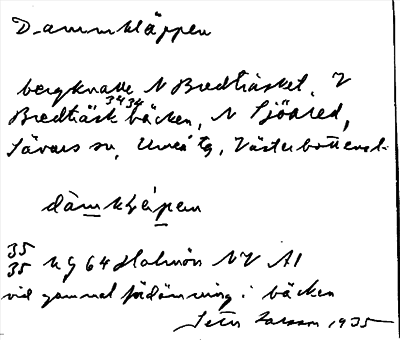 Dammkläppen
bergknalle N Bredträsket, V
3434
Bredträskbäcken, N Sjöared,
Sävars sn, Umeå tg, Västerbottensl.
dàmkḷepen
35
35 Kg 64 Holmön NV A1
vid gammal fördämning i bäcken
Larsson 1935